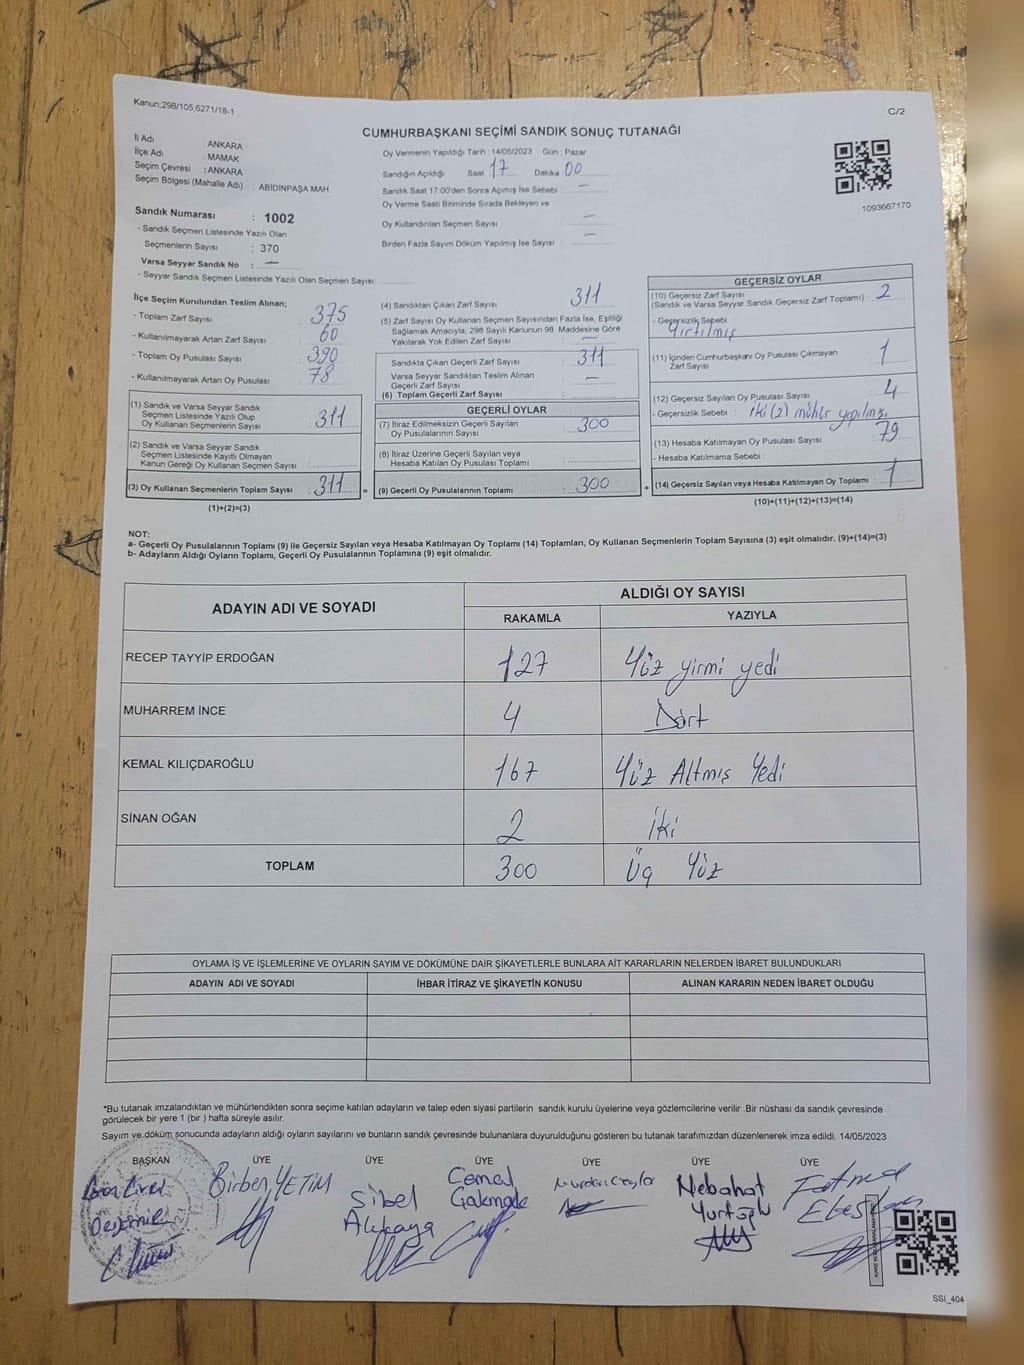 Kanun;298/105;6271/18-1
C/2
CUMHURBAŞKANI SEÇİMİ SANDIK SONUÇ TUTANAĞI
İl Adı : ANKARA
İlçe Adı : MAMAK
Seçim Çevresi : ANKARA
Seçim Bölgesi (Mahalle Adı) : ABİDİNPAŞA MAH
Sandık Numarası : 1002
- Sandık Seçmen Listesinde Yazılı Olan
Seçmenlerin Sayısı : 370
Varsa Seyyar Sandık No : —
- Seyyar Sandık Seçmen Listesinde Yazılı Olan Seçmen Sayısı:
Oy Vermenin Yapıldığı Tarih : 14/05/2023 Gün : Pazar
Sandığın Açıldığı Saat : 17 Dakika : 00
Sandık Saat 17:00'den Sonra Açımış İse Sebebi : —
Oy Verme Saati Bitiminde Sırada Bekleyen ve
Oy Kullandırılan Seçmen Sayısı : —
Birden Fazla Sayım Döküm Yapılmış İse Sayısı : —
1093667170
İlçe Seçim Kurulundan Teslim Alınan;
- Toplam Zarf Sayısı : 375
- Kullanılmayarak Artan Zarf Sayısı : 60
- Toplam Oy Pusulası Sayısı : 390
- Kullanılmayarak Artan Oy Pusulası : 78
(1) Sandık ve Varsa Seyyar Sandık
Seçmen Listesinde Yazılı Olup
Oy Kullanan Seçmenlerin Sayısı : 311
(2) Sandık ve Varsa Seyyar Sandık
Seçmen Listesinde Kayıtlı Olmayan
Kanun Gereği Oy Kullanan Seçmen Sayısı :
(3) Oy Kullanan Seçmenlerin Toplam Sayısı : 311 =
(1)+(2)=(3)
(4) Sandıktan Çıkan Zarf Sayısı : 311
(5) Zarf Sayısı Oy Kullanan Seçmen Sayısından Fazla İse, Eşitliği
Sağlamak Amacıyla, 298 Sayılı Kanunun 98. Maddesine Göre
Yakılarak Yok Edilen Zarf Sayısı : —
Sandıkta Çıkan Geçerli Zarf Sayısı : 311
Varsa Seyyar Sandıktan Teslim Alınan
Geçerli Zarf Sayısı : —
(6) Toplam Geçerli Zarf Sayısı :
GEÇERLİ OYLAR
(7) İtiraz Edilmeksizin Geçerli Sayılan
Oy Pusulalarının Sayısı : 300
(8) İtiraz Üzerine Geçerli Sayılan veya
Hesaba Katılan Oy Pusulası Toplamı :
(9) Geçerli Oy Pusulalarının Toplamı : 300 +
GEÇERSİZ OYLAR
(10) Geçersiz Zarf Sayısı
(Sandık ve Varsa Seyyar Sandık Geçersiz Zarf Toplamı) : 2
- Geçersizlik Sebebi :
Yırtılmış
(11) İçinden Cumhurbaşkanı Oy Pusulası Çıkmayan
Zarf Sayısı : 1
(12) Geçersiz Sayılan Oy Pusulası Sayısı : 4
- Geçersizlik Sebebi : iki (2) mühür yapılmış
(13) Hesaba Katılmayan Oy Pusulası Sayısı : 79
- Hesaba Katılmama Sebebi :
(14) Geçersiz Sayılan veya Hesaba Katılmayan Oy Toplamı : 1
(10)+(11)+(12)+(13)=(14)
NOT:
a- Geçerli Oy Pusulalarının Toplamı (9) ile Geçersiz Sayılan veya Hesaba Katılmayan Oy Toplamı (14) Toplamları, Oy Kullanan Seçmenlerin Toplam Sayısına (3) eşit olmalıdır. (9)+(14)=(3)
b- Adayların Aldığı Oyların Toplamı, Geçerli Oy Pusulalarının Toplamına (9) eşit olmalıdır.
ADAYIN ADI VE SOYADI
ALDIĞI OY SAYISI
RAKAMLA YAZIYLA
RECEP TAYYİP ERDOĞAN 127 Yüz yirmi yedi
MUHARREM İNCE 4 Dört
KEMAL KILIÇDAROĞLU 167 Yüz Altmış Yedi
SİNAN OĞAN 2 İki
TOPLAM 300 Üç Yüz
OYLAMA İŞ VE İŞLEMLERİNE VE OYLARIN SAYIM VE DÖKÜMÜNE DAİR ŞİKAYETLERLE BUNLARA AİT KARARLARIN NELERDEN İBARET BULUNDUKLARI
ADAYIN ADI VE SOYADI İHBAR İTİRAZ VE ŞİKAYETİN KONUSU ALINAN KARARIN NEDEN İBARET OLDUĞU
*Bu tutanak imzalandıktan ve mühürlendikten sonra seçime katılan adayların ve talep eden siyasi partilerin sandık kurulu üyelerine veya gözlemcilerine verilir .Bir nüshası da sandık çevresinde
görülecek bir yere 1 (bir ) hafta süreyle asılır.
Sayım ve döküm sonucunda adayların aldığı oyların sayılarını ve bunların sandık çevresinde bulunanlara duyurulduğunu gösteren bu tutanak tarafımızdan düzenlenerek imza edildi. 14/05/2023
BAŞKAN ÜYE ÜYE ÜYE ÜYE ÜYE ÜYE
Birben YETİM
Sibel
Cemal
Nebahat
Fatma
SSI_404